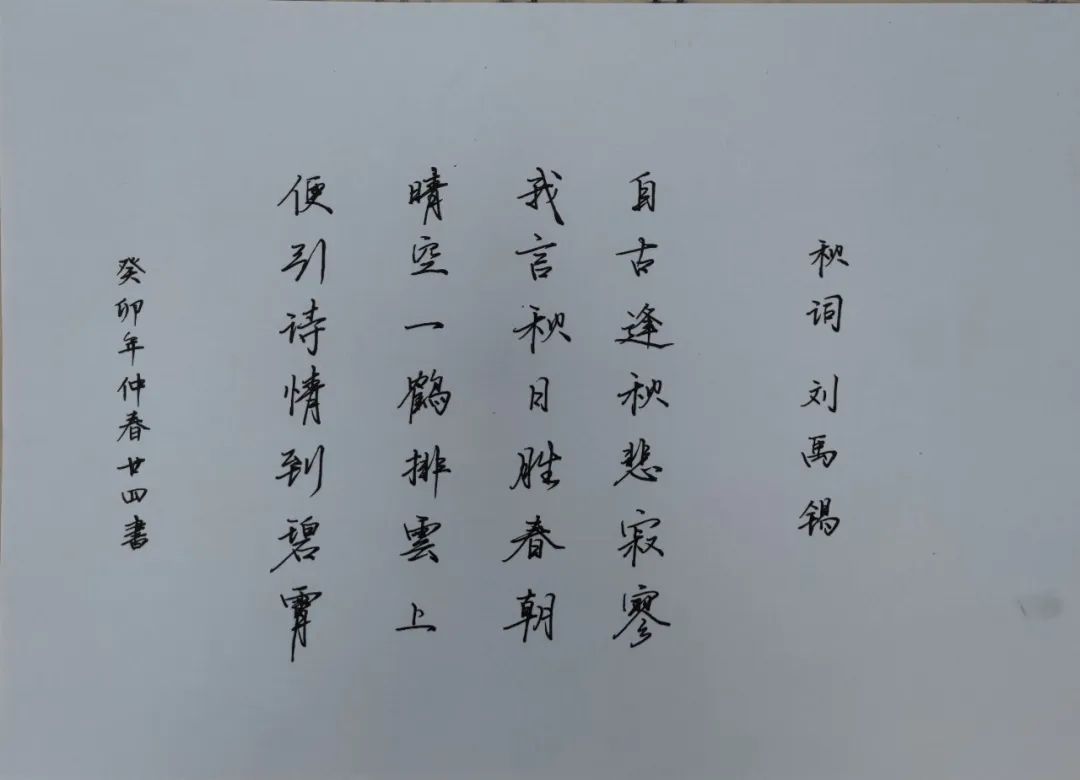 秋词 刘禹锡
自古逢秋悲寂寥
我言秋日胜春朝
晴空一鹤排雲上
便引诗情到碧霄
癸卯年仲春廿四书